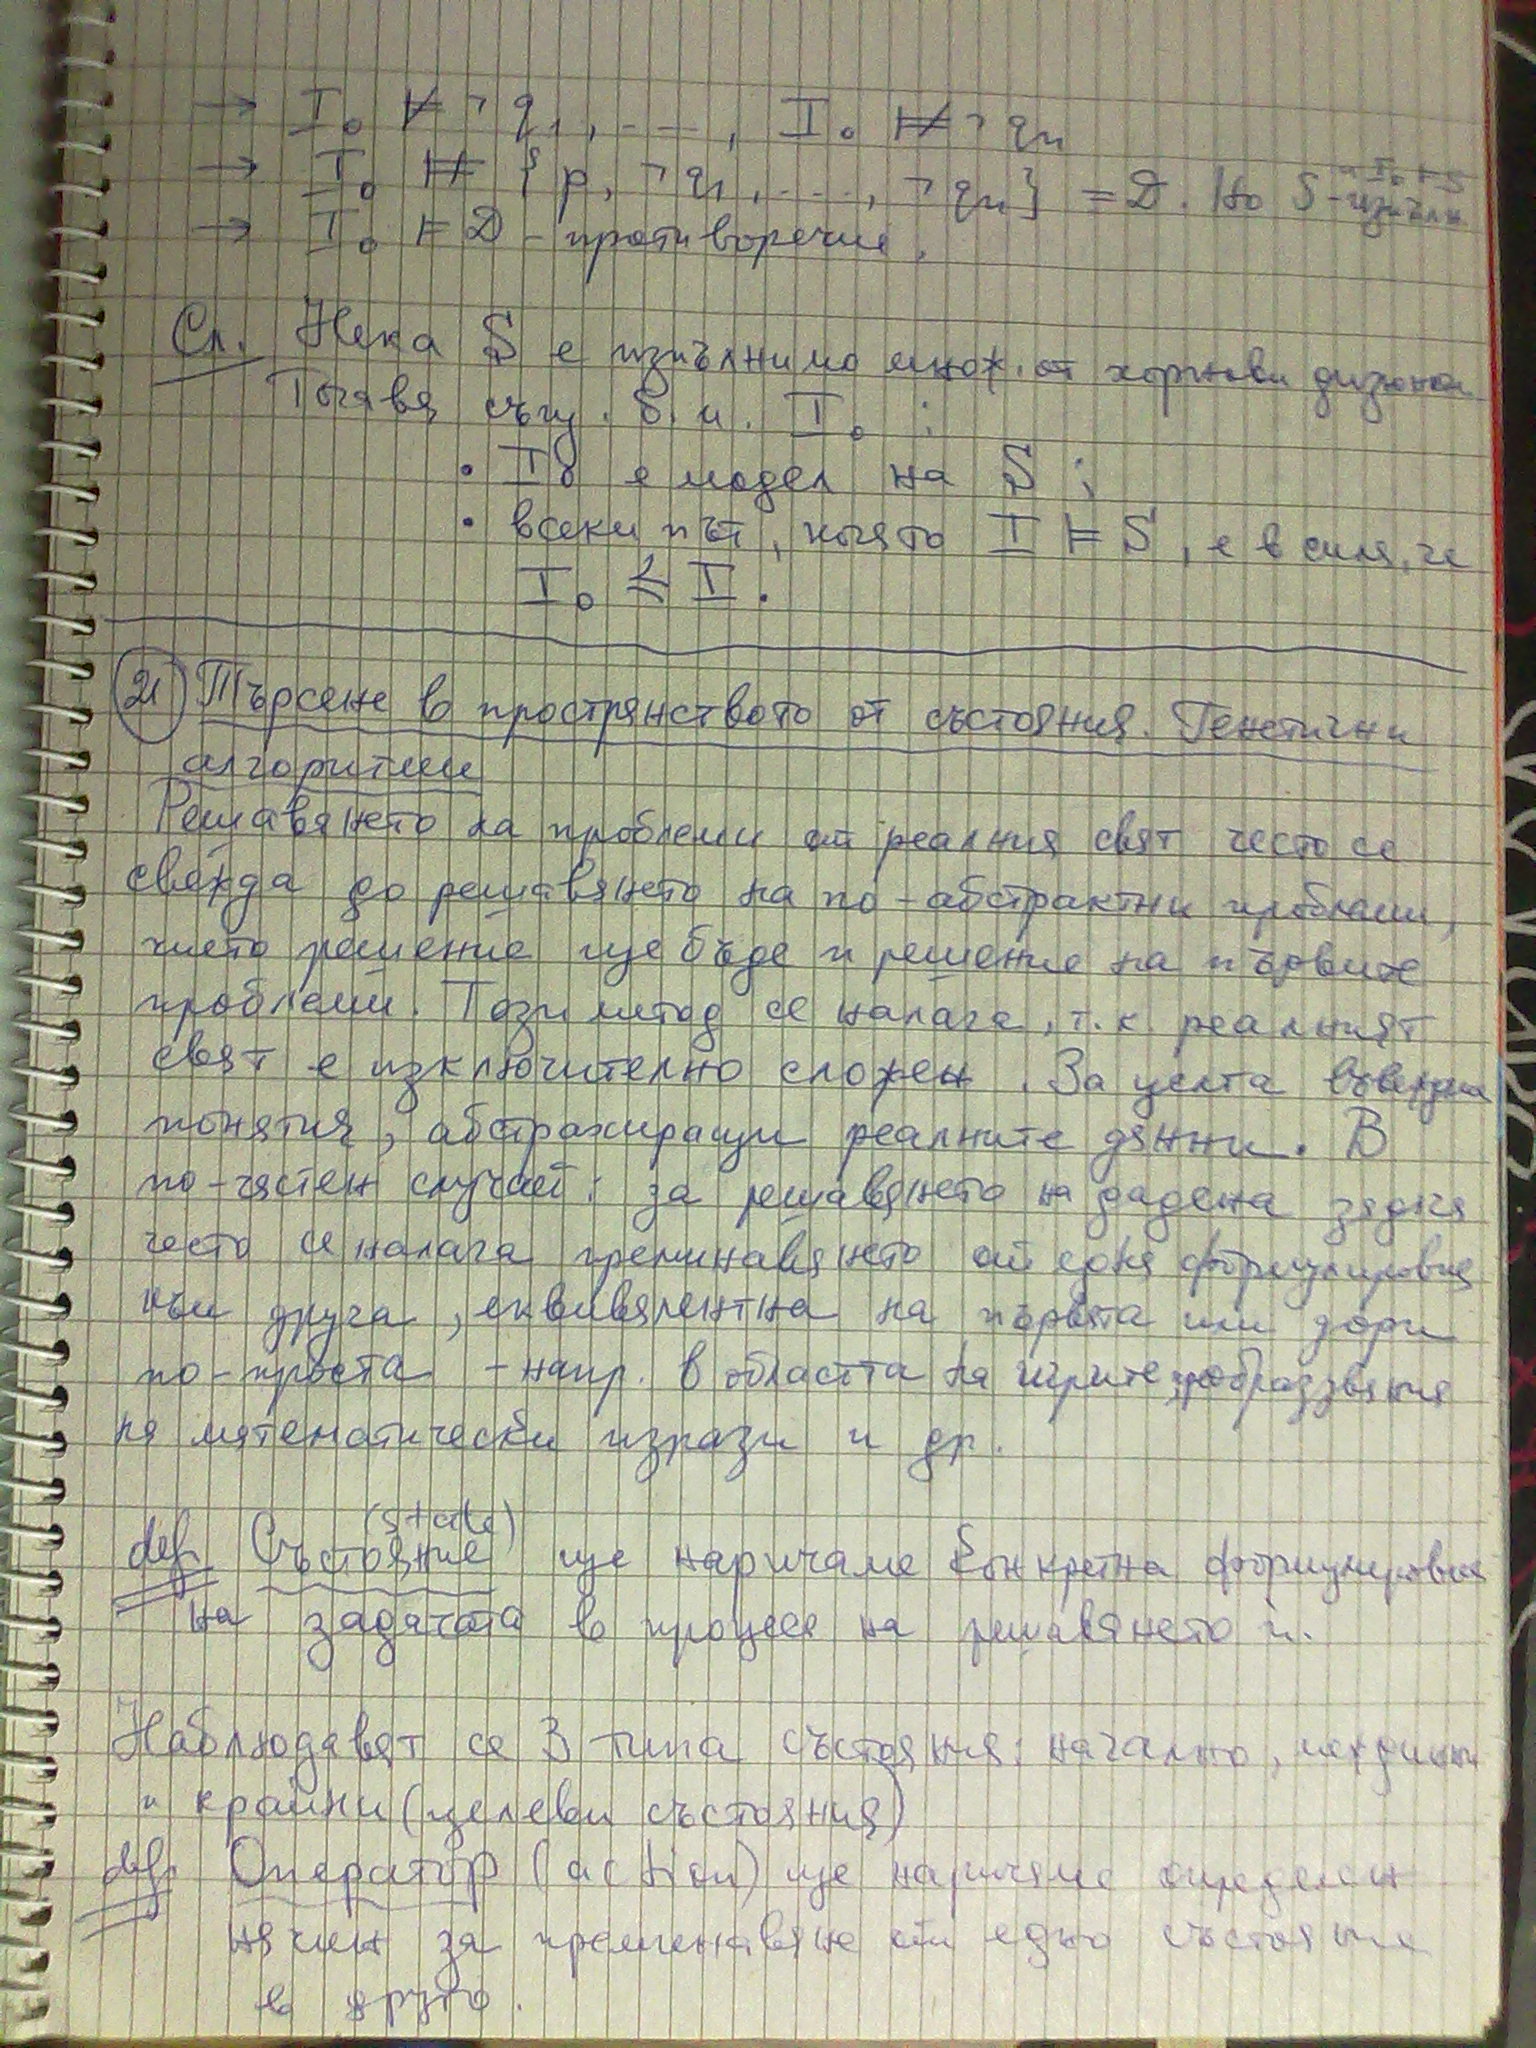 → I₀ ⊭ ¬q₁, ..., I₀ ⊭ ¬qₙ
→ I₀ ⊭ {p, ¬q₁, ..., ¬qₙ} = D. Но S -
→ I₀ ⊨ D - противоречие.
Сл. Нека S е изпълнимо множ. от хорнови дизюнкти
Тогава същ. б. и. I₀ :
• I₀ е модел на S ;
• всеки път, когато I ⊨ S, е в сила, че
I₀ ≤ I.
21 Търсене в пространството от състояния. Генетични
алгоритми
Решаването на проблеми от реалния свят често се
свежда до решаването на по-абстрактни проблеми,
чието решение ще бъде и решение на първите
проблеми. Този метод се налага, т.к. реалният
свят е изключително сложен. За целта въвеждаме
понятия, абстрахиращи реалните данни. В
по-частен случай: за решаването на дадена задача
често се налага преминаването от една формулировка
към друга, еквивалентна на първата или дори
по-проста - напр. в областта на игрите, преобразувания
на математически изрази и др.
(state)
def Състояние ще наричаме конкретна формулировка
на задачата в процеса на решаването и.
Наблюдават се 3 типа състояния: начално, междинни
и крайни (целеви състояния)
def Оператор (action) ще наричаме определен
начин за преминаване от едно състояние
в друго.